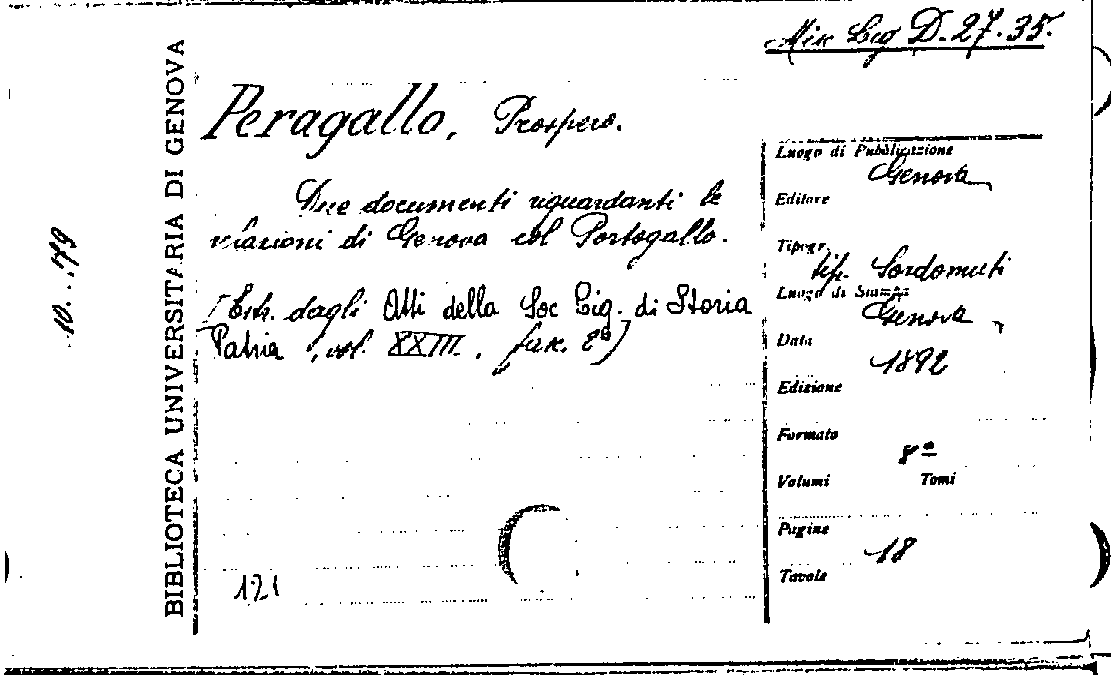 Misc Lig D.27.35.
BIBLIOTECA UNIVERSITARIA DI GENOVA
10...79
Peragallo, Prospero.
Due documenti riguardanti le
relazioni di Genova col Portogallo.
[Estr. dagli Atti della Soc Lig. di Storia
Patria, vol. XXIII, fasc. 2º]
121
Luogo di Pubblicazione
Genova
Editore
Tipogr.
tip. Sordomuti
Luogo di Stampa
Genova
Data
1892
Edizione
Formato
8º
Volumi Tomi
Pagine
18
Tavole